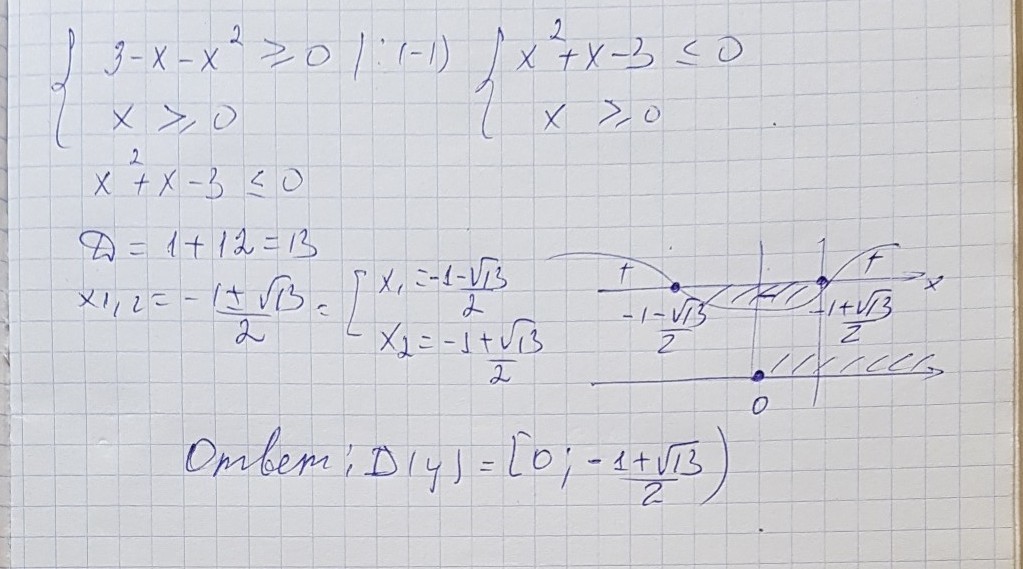 { 3-x-x² ≥ 0 |:(-1) { x²+x-3 ≤ 0
x ≥ 0 x ≥ 0
x²+x-3 ≤ 0
D = 1+12=13
x1,2 = -1±√13/2 = [ x₁ = -1-√13/2
x₂ = -1+√13/2
+ - + x
-1-√13/2 -1+√13/2
0
Ответ: D(y) = [0; -1+√13/2)